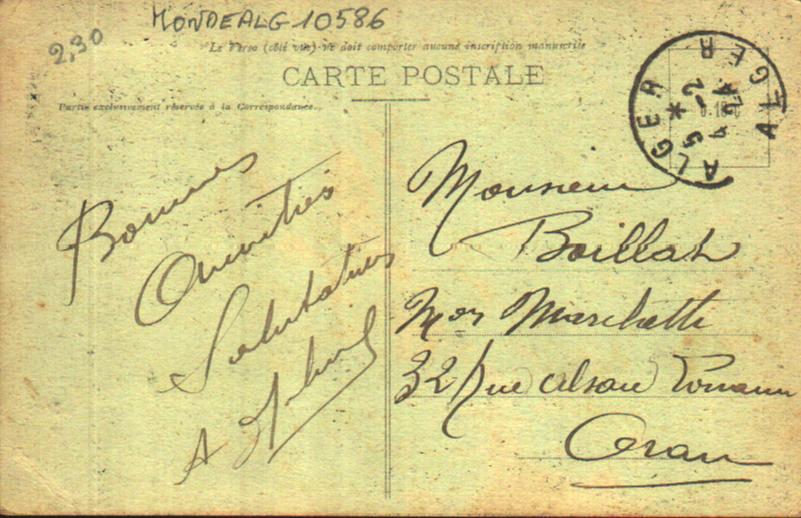 MONDEALG 10586
2,30
Le Verso (côté vue) ne doit comporter aucune inscription manuscrite
CARTE POSTALE
Partie exclusivement réservée à la Correspondance.
ALGER * ALGER
5-2
24
Bonnes
Amitiés
Salutations
A
Monsieur
Boillat
Mon Marchetti
32 Rue
Oran